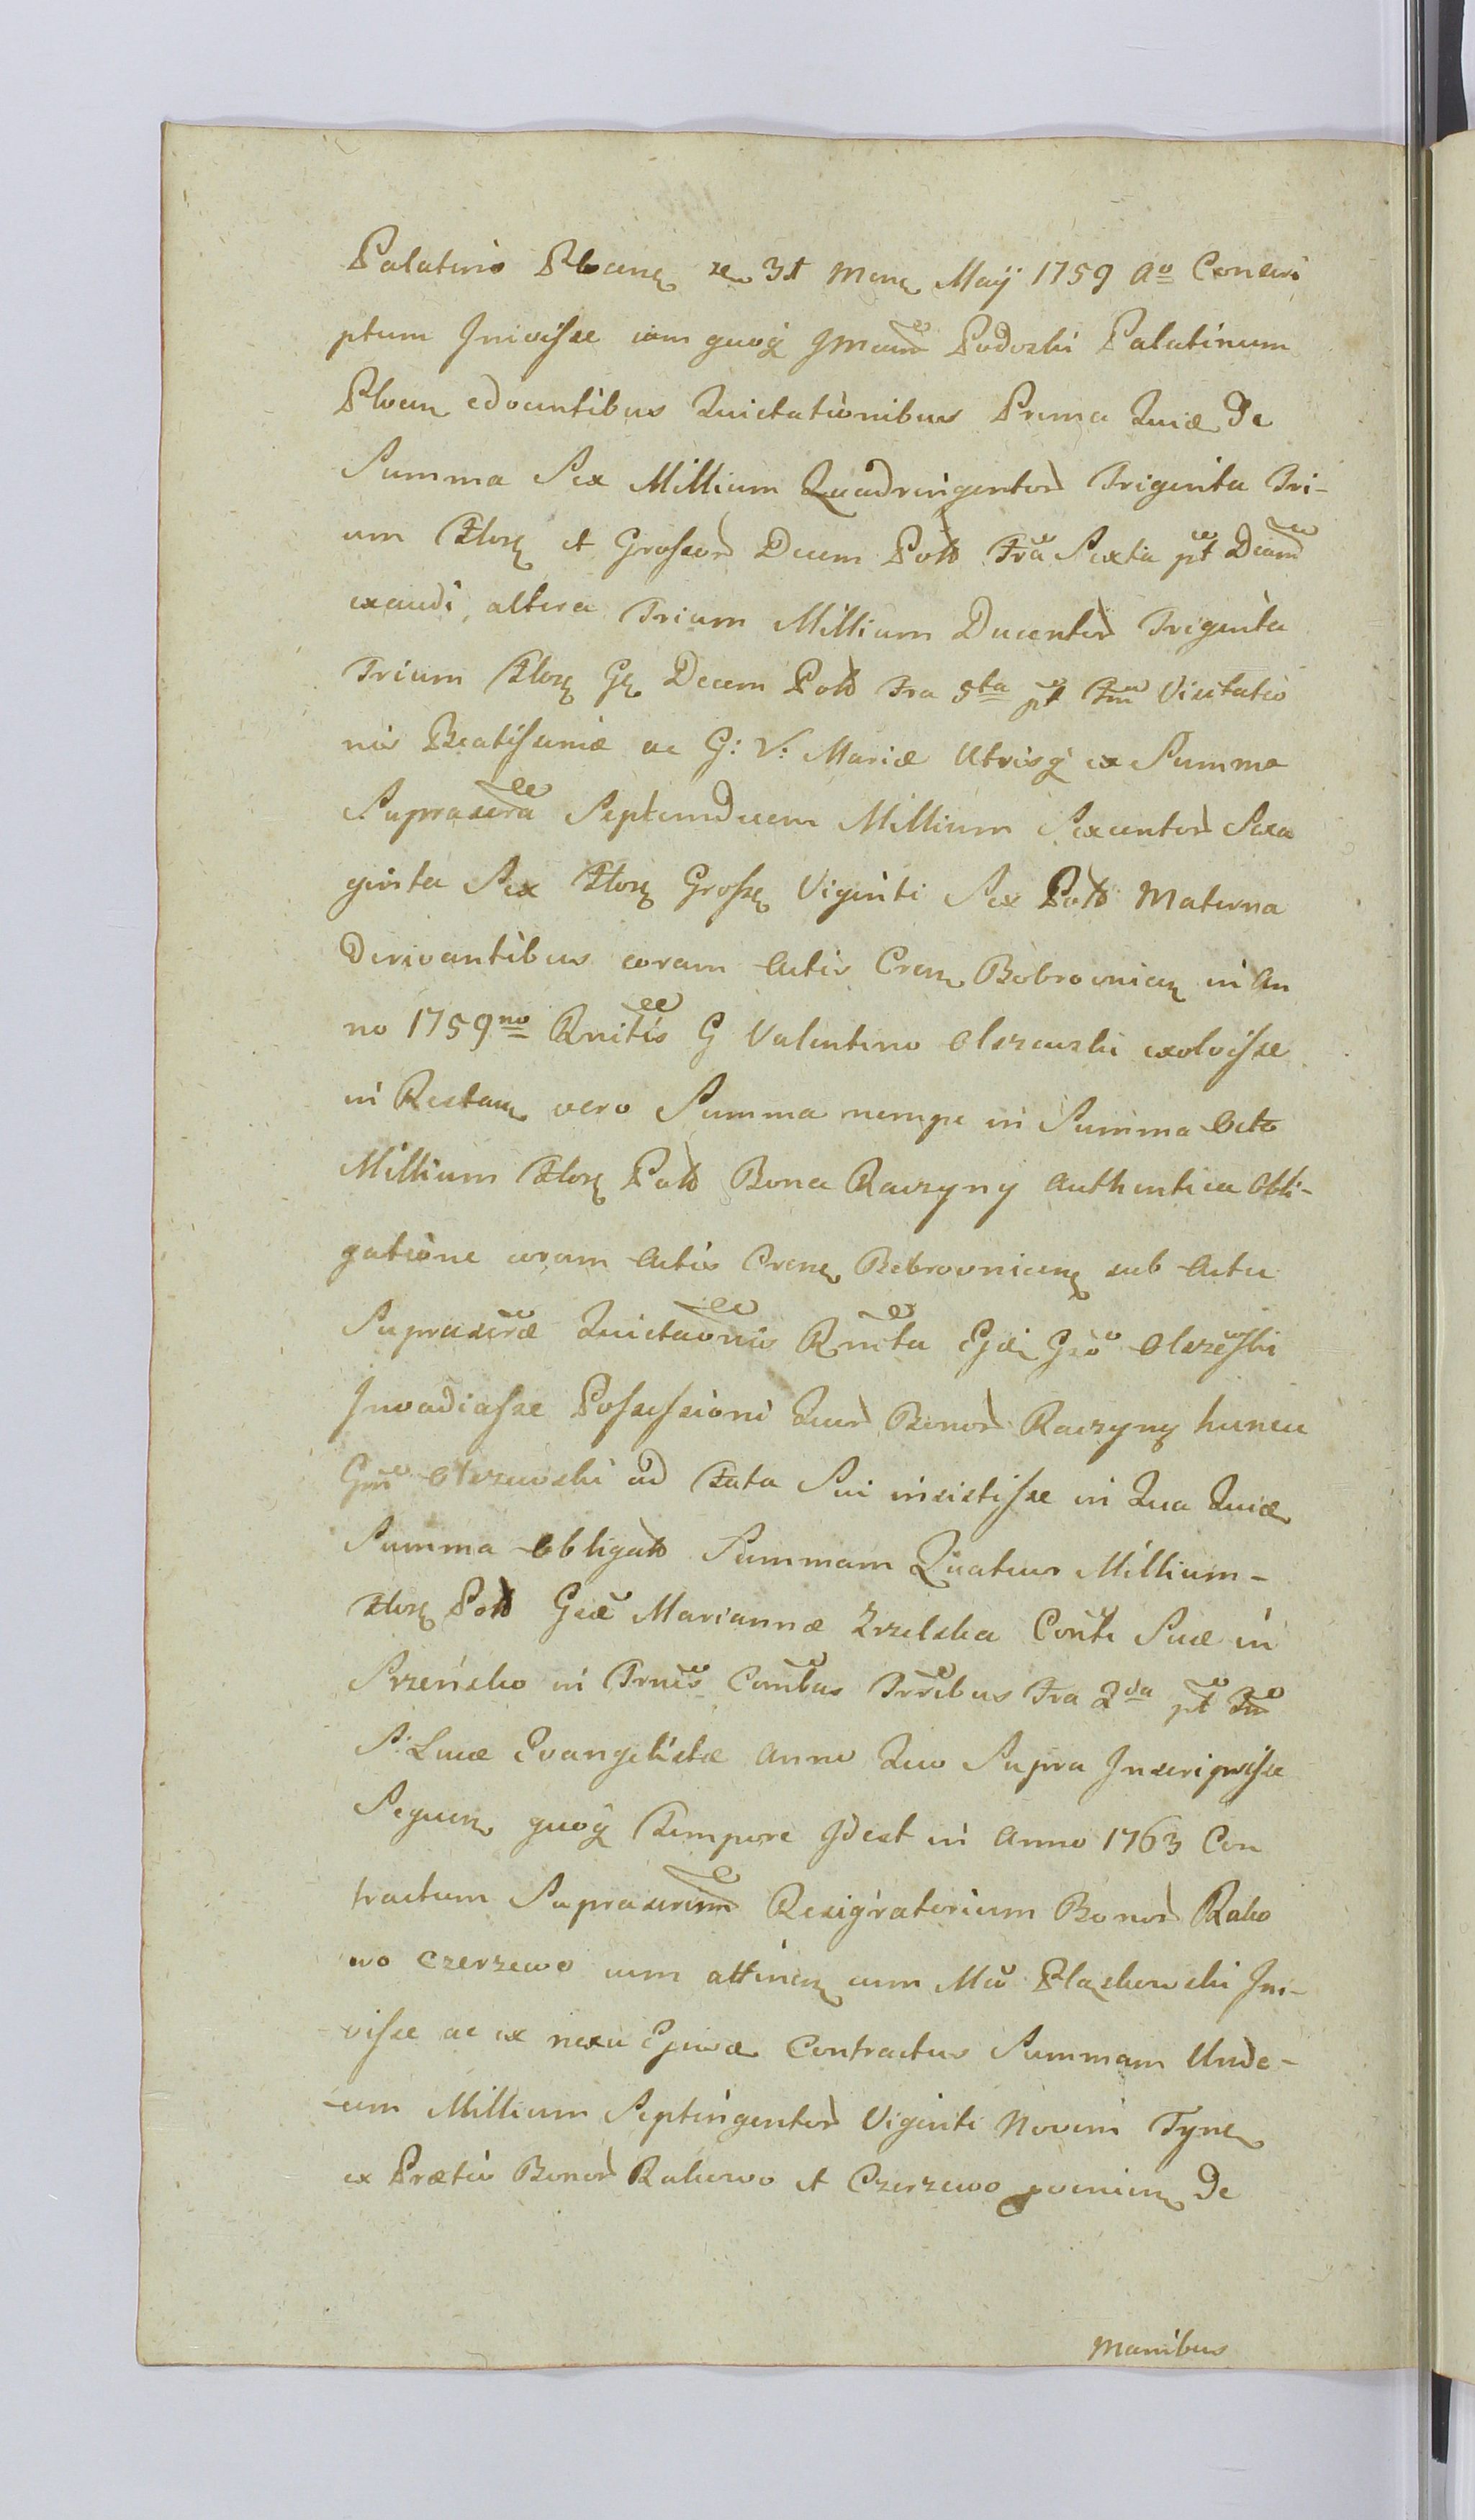 Palatino Plocen se 31 Mens Maÿ 1759 Ao Conscri
ptum Inivisse iam quoq Imum Podoski Palatinum
Plocen edocentibus Quietationibus Prima Quidē De
Summa Sex Millium Quadringentor Triginta Tri-
um Flor et Grossor Decem Poll Fra Sexta pt Dcam
exaudi, altera Trium Millium Ducentor Triginta
Trium Flor Gr Decem Poll Fra 5ta pt Ftm Visitatio
nis Beatissimæ ac G: V: Mariæ Utrisq ex Summa
Suprascra Septemdecem Millium Sexcentor Sexa
ginta Sex Flor Gross Viginti Sex Poll Materna
Derivantibus coram Actis Cren Bobrovnicen in An
no 1759no Rnitis G Valentino Olszewski exolvisse
in Restan vero Summa nempe in Summa Octo
Millium Flor Poll Bona Raczyny Authentica Obli-
gatione coram Actis Crens Bobrovnicen sub Actu
Suprascræ Quietaonis Rnita Ejd Gso Olszewski
Invadiasse Possessioni Quor Bonor Raczyny hunce
Gm Olszewski ad Fata Sui insistisse in Qua Quidē
Summa Obligato Summam Quatuor Millium -
Flor Poll Gsæ Mariannæ Zrzelska Conti Suæ in
Srzeńsko in Prncs Combus Trribus Fra 2da pt Ftm
S: Lucæ Evangelistæ Anno Quo Supra Inscripsisse
Sequen quoq Tempore Idest in Anno 1763 Con
tractum Suprascrim Resignatorium Bonor Rako
wo Czerzewo cum attinen cum Mco Plaskowski Ini-
visse ac ex nexu Ejusd Contractus Summam Unde-
-cim Millium Septingentor Viginti Novem Tynf
ex Prætio Bonor Rakowo et Czerzewo provenien De
Manibus